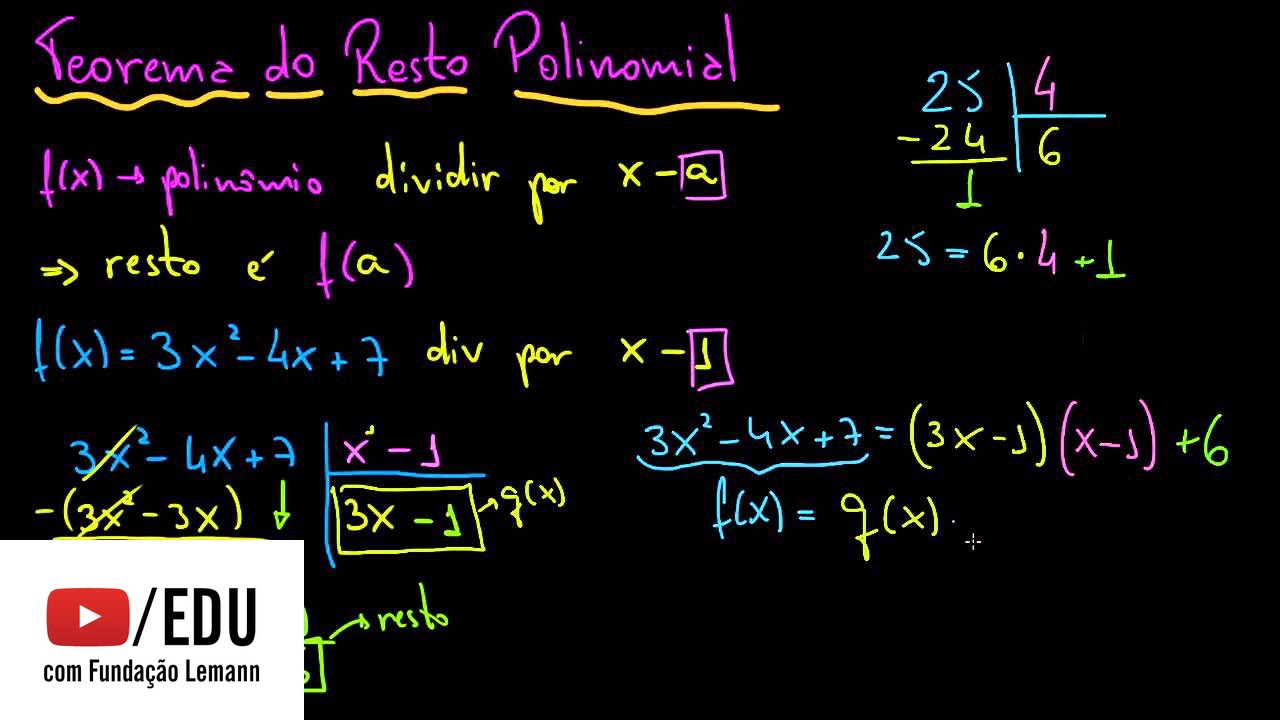 Teorema do Resto Polinomial
f(x) → polinômio dividir por x - a
⇒ resto é f(a)
f(x) = 3x² - 4x + 7 div por x - 1
3x² - 4x + 7 x¹ - 1
-(3x² - 3x) 3x - 1 → q(x)
→ resto
25 4
-24 6
1
25 = 6 · 4 + 1
3x² - 4x + 7 = (3x - 1)(x - 1) + 6
f(x) = q(x) ·
/EDU
com Fundação Lemann